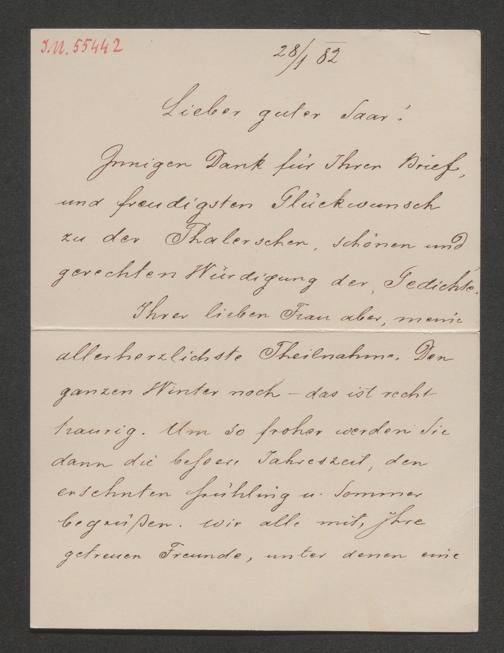 J.N. 55442
28/1 82
Lieber guter Saar!
Innigen Dank für Ihren Brief,
und freudigsten Glückwunsch
zu der Thalerschen, schönen und
gerechten Würdigung der „Gedichte.
Ihrer lieben Frau aber, meine
allerherzlichste Theilnahme. Den
ganzen Winter noch – das ist recht
traurig. Um so froher werden Sie
dann die bessere Jahreszeit, den
ersehnten Frühling u. Sommer
begrüßen. Wir alle mit, Ihre
getreuen Freunde, unter denen eine